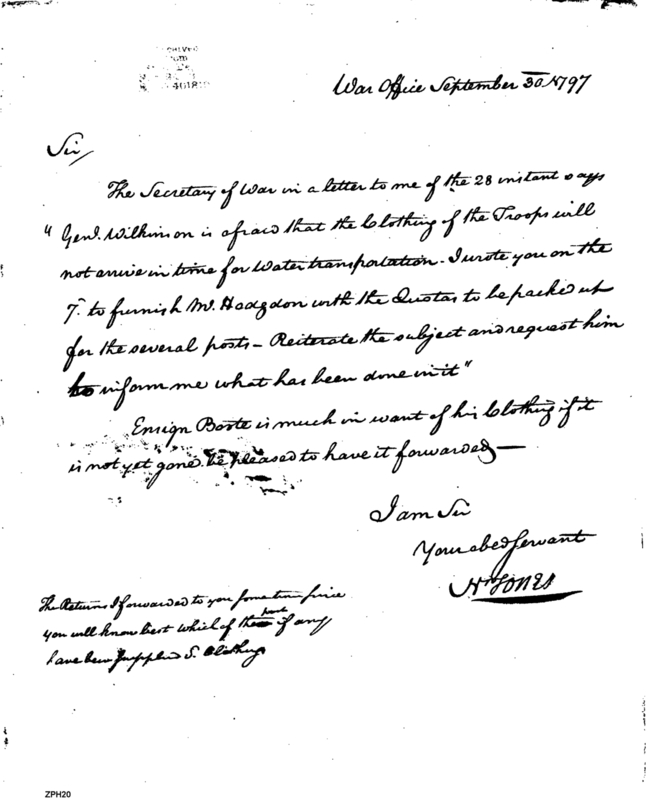 War Office September 30 1797
Sir/
The Secretary of War in a letter to me of the 28 instant says
"Genl. Wilkinson is afraid that the Clothing of the Troops will
not arrive in time for Water transportation - I wrote you on the
7. to furnish Mr. Hodgdon with the Quotas to be packed up
for the several posts - Reiterate the subject and request him
to inform me what has been done in it"
Ensign is much in want of his Clothing if it
is not yet gone be pleased to have it forwarded —
I am Sir
Your obed Servant
Jones
The Returns I forwarded to you some time since
you will know best which of the if any
have been supplied S. Clothing
ZPH20